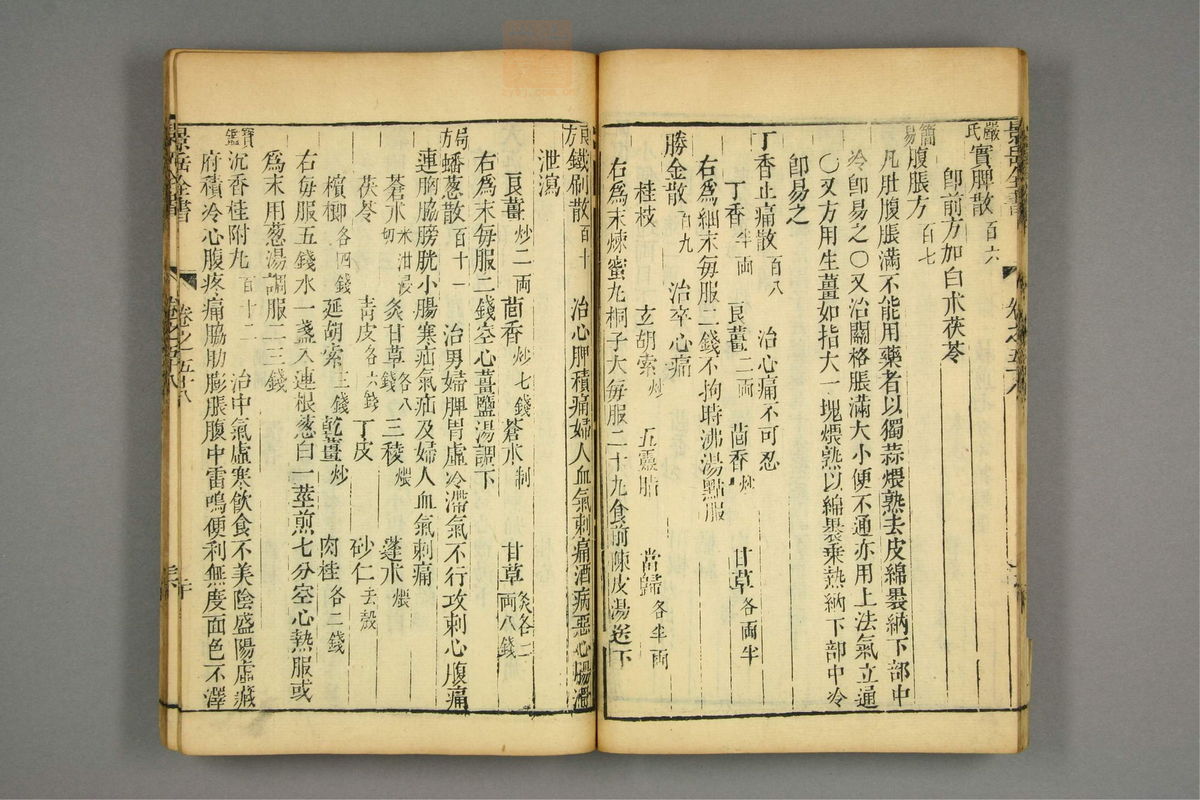 嚴氏實脾散百六
即前方加白朮茯苓
簡易腹脹方百七
凡肚腹脹滿不能用藥者以獨蒜煨熟去皮綿裹納下部中
冷卽易之〇又治關格脹滿大小便不通亦用上法氣立通
〇又方用生薑如指大一塊煨熟以綿裹乗熱納下部中冷
卽易之
丁香止痛散百八 治心痛不可忍
丁香半兩 良薑二兩 茴香炒 甘草各兩半
右爲細末每服二錢不拘時沸湯點服
勝金散百九 治卒心痛
桂枝 玄胡索炒 五靈脂 當歸各半兩
右爲末煉蜜丸桐子大每服二十丸食前陳皮湯送下
良方鐵刷散百十 治心脾積痛婦人血氣刺痛酒病惡心腸滑
泄瀉
良薑炒二兩 茴香炒七錢 蒼朮制 甘草炙各二兩八錢
右爲末每服二錢空心薑鹽湯調下
局方蟠葱散百十一 治男婦脾胃虛冷滯氣不行攻刺心腹痛
連胸脇膀胱小腸寒疝氣疝及婦人血氣刺痛
蒼朮切米泔浸 炙甘草各八錢 三稜煨 蓬朮煨
茯苓 靑皮各六錢 丁皮 砂仁去殼
檳榔各四錢 延胡索三錢 乾薑炒 肉桂各二錢
右每服五錢水一盞入連根葱白一莖煎七分空心熱服或
爲末用葱湯調服二三錢
寶鑑沉香桂附丸百十二 治中氣虛寒飲食不美陰盛陽虛臟
府積冷心腹疼痛脇肋膨脹腹中雷鳴便利無度面色不澤
景岳全書 卷之五十八